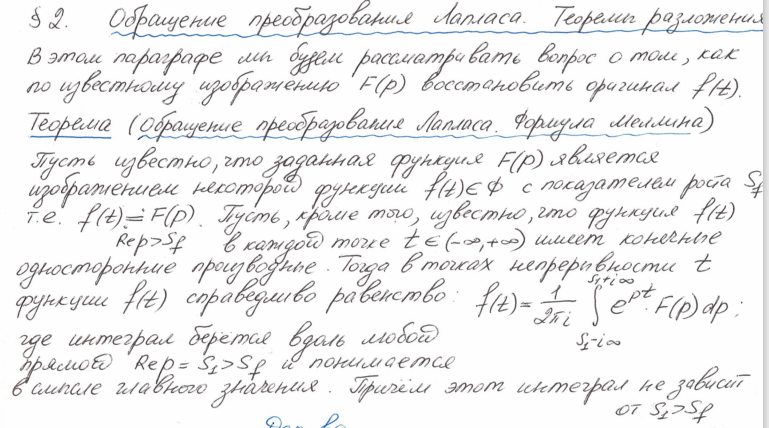 § 2. Обращение преобразования Лапласа. Теоремы разложения
В этом параграфе мы будем рассматривать вопрос о том, как
по известному изображению F(p) восстановить оригинал f(t).
Теорема (Обращение преобразования Лапласа. Формула Меллина)
Пусть известно, что заданная функция F(p) является
изображением некоторой функции f(t)∈Φ с показателем роста S_f
т.е. f(t)≓F(p). Пусть, кроме того, известно, что функция f(t)
Rep>S_f в каждой точке t∈(-∞,+∞) имеет конечные
односторонние производные. Тогда в точках непрерывности t
функции f(t) справедливо равенство: f(t)=1/2πi ∫_{S₁-i∞}^{S₁+i∞} e^{pt}·F(p)dp;
где интеграл берется вдоль любой
прямой Rep=S₁>S_f и понимается
в смысле главного значения. Причём этот интеграл не зависит
от S₁>S_f